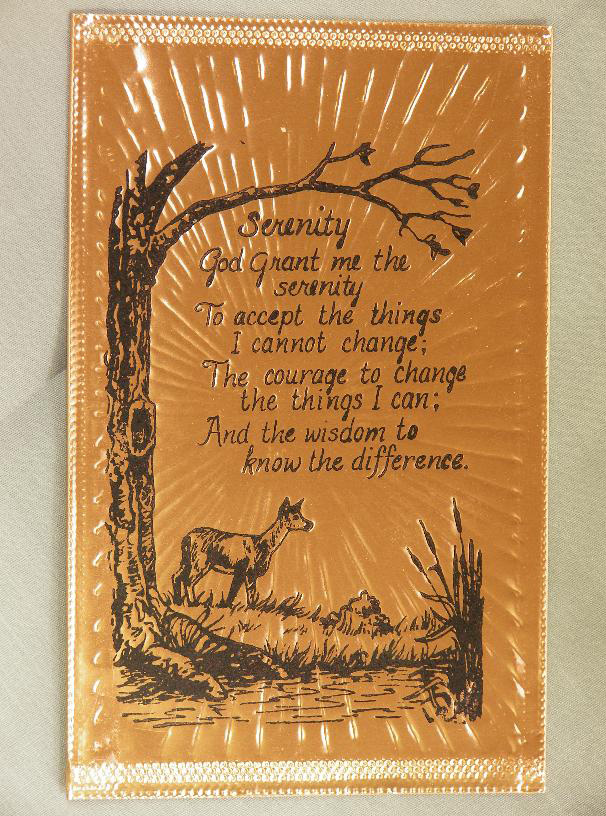 Serenity
God Grant me the
serenity
To accept the things
I cannot change;
The courage to change
the things I can;
And the wisdom to
know the difference.